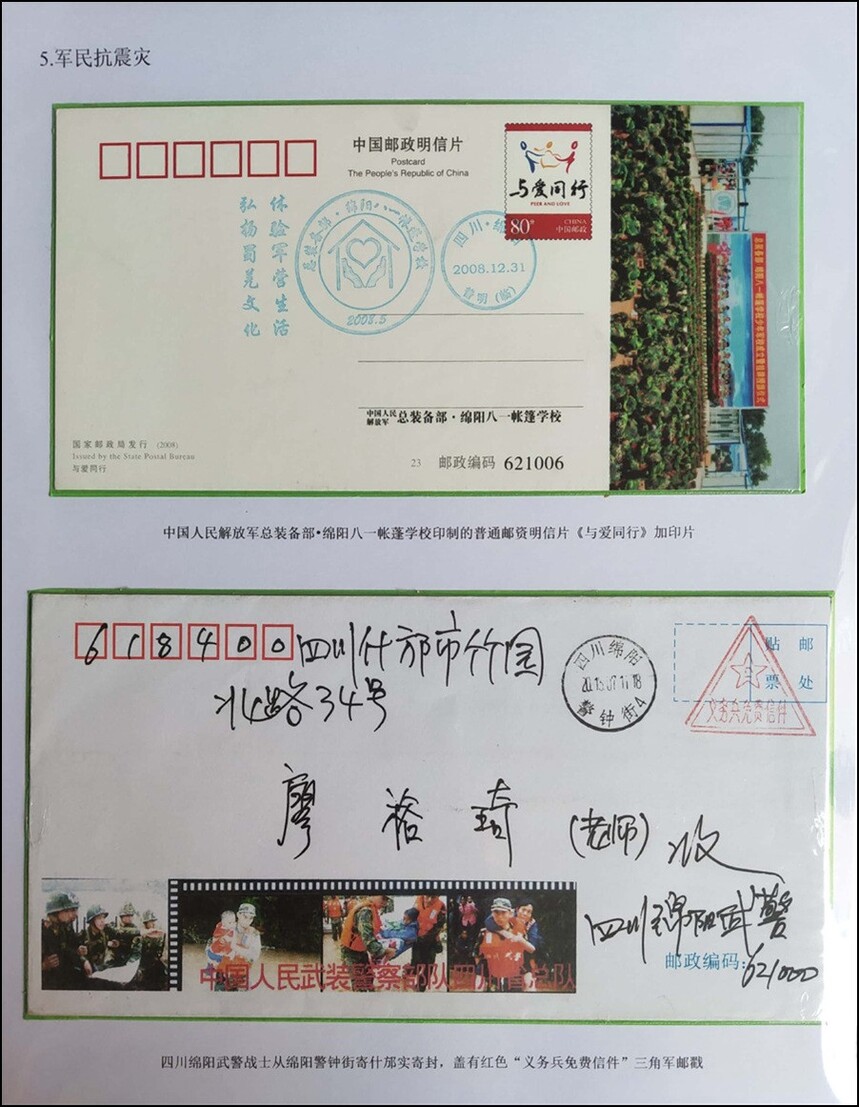 5.军民抗震灾
中国邮政明信片
Postcard
The People's Republic of China
与爱同行
PEER AND LOVE
80分
CHINA
中国邮政
体验军营生活
弘扬蜀羌文化
总装备部·绵阳八一帐篷学校
2008.5
四川·绵
2008.12.31
普明(临)
中国人民解放军 总装备部·绵阳八一帐篷学校
国家邮政局发行 (2008)
Issued by the State Postal Bureau
与爱同行
23 邮政编码 621006
中国人民解放军总装备部•绵阳八一帐蓬学校印制的普通邮资明信片《与爱同行》加印片
618400
四川什邡市竹园
北路34号
四川绵阳
警钟街4
贴邮
票处
义务兵免费信件
廖裕琦(老师)收
四川绵阳武警
邮政编码:621000
中国人民武装警察部队四川省总队
四川绵阳武警战士从绵阳警钟街寄什邡实寄封，盖有红色“义务兵免费信件”三角军邮戳